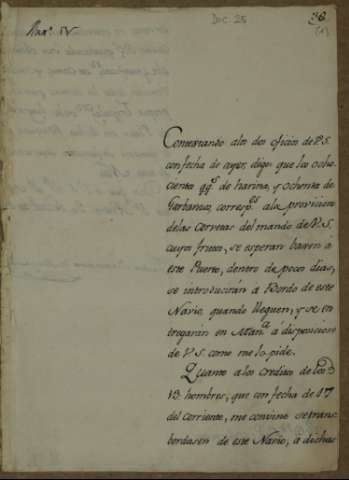 Num.º IV
Doc. 25
38
(1)
Contestando alos dos oficios de V.S.
con fecha de ayer, digo que los ocho
cientos qq.s de harina, y ochenta de
Garbanzos, corresp.tes ala provision
delas Corvetas del mando de V.S.
cuyos frutos, se esperan baxen à
este Puerto, dentro de pocos dias,
se introducirán à Bordo de este
Navio, quando lleguen, y se en
tregarán en Man.a à disposicion
de V.S. como me lo pide.
Quanto a los creditos de los
13 hombres, que con fecha de 17
del corriente, me convine setrans
bordasen de este Navio, à dichas